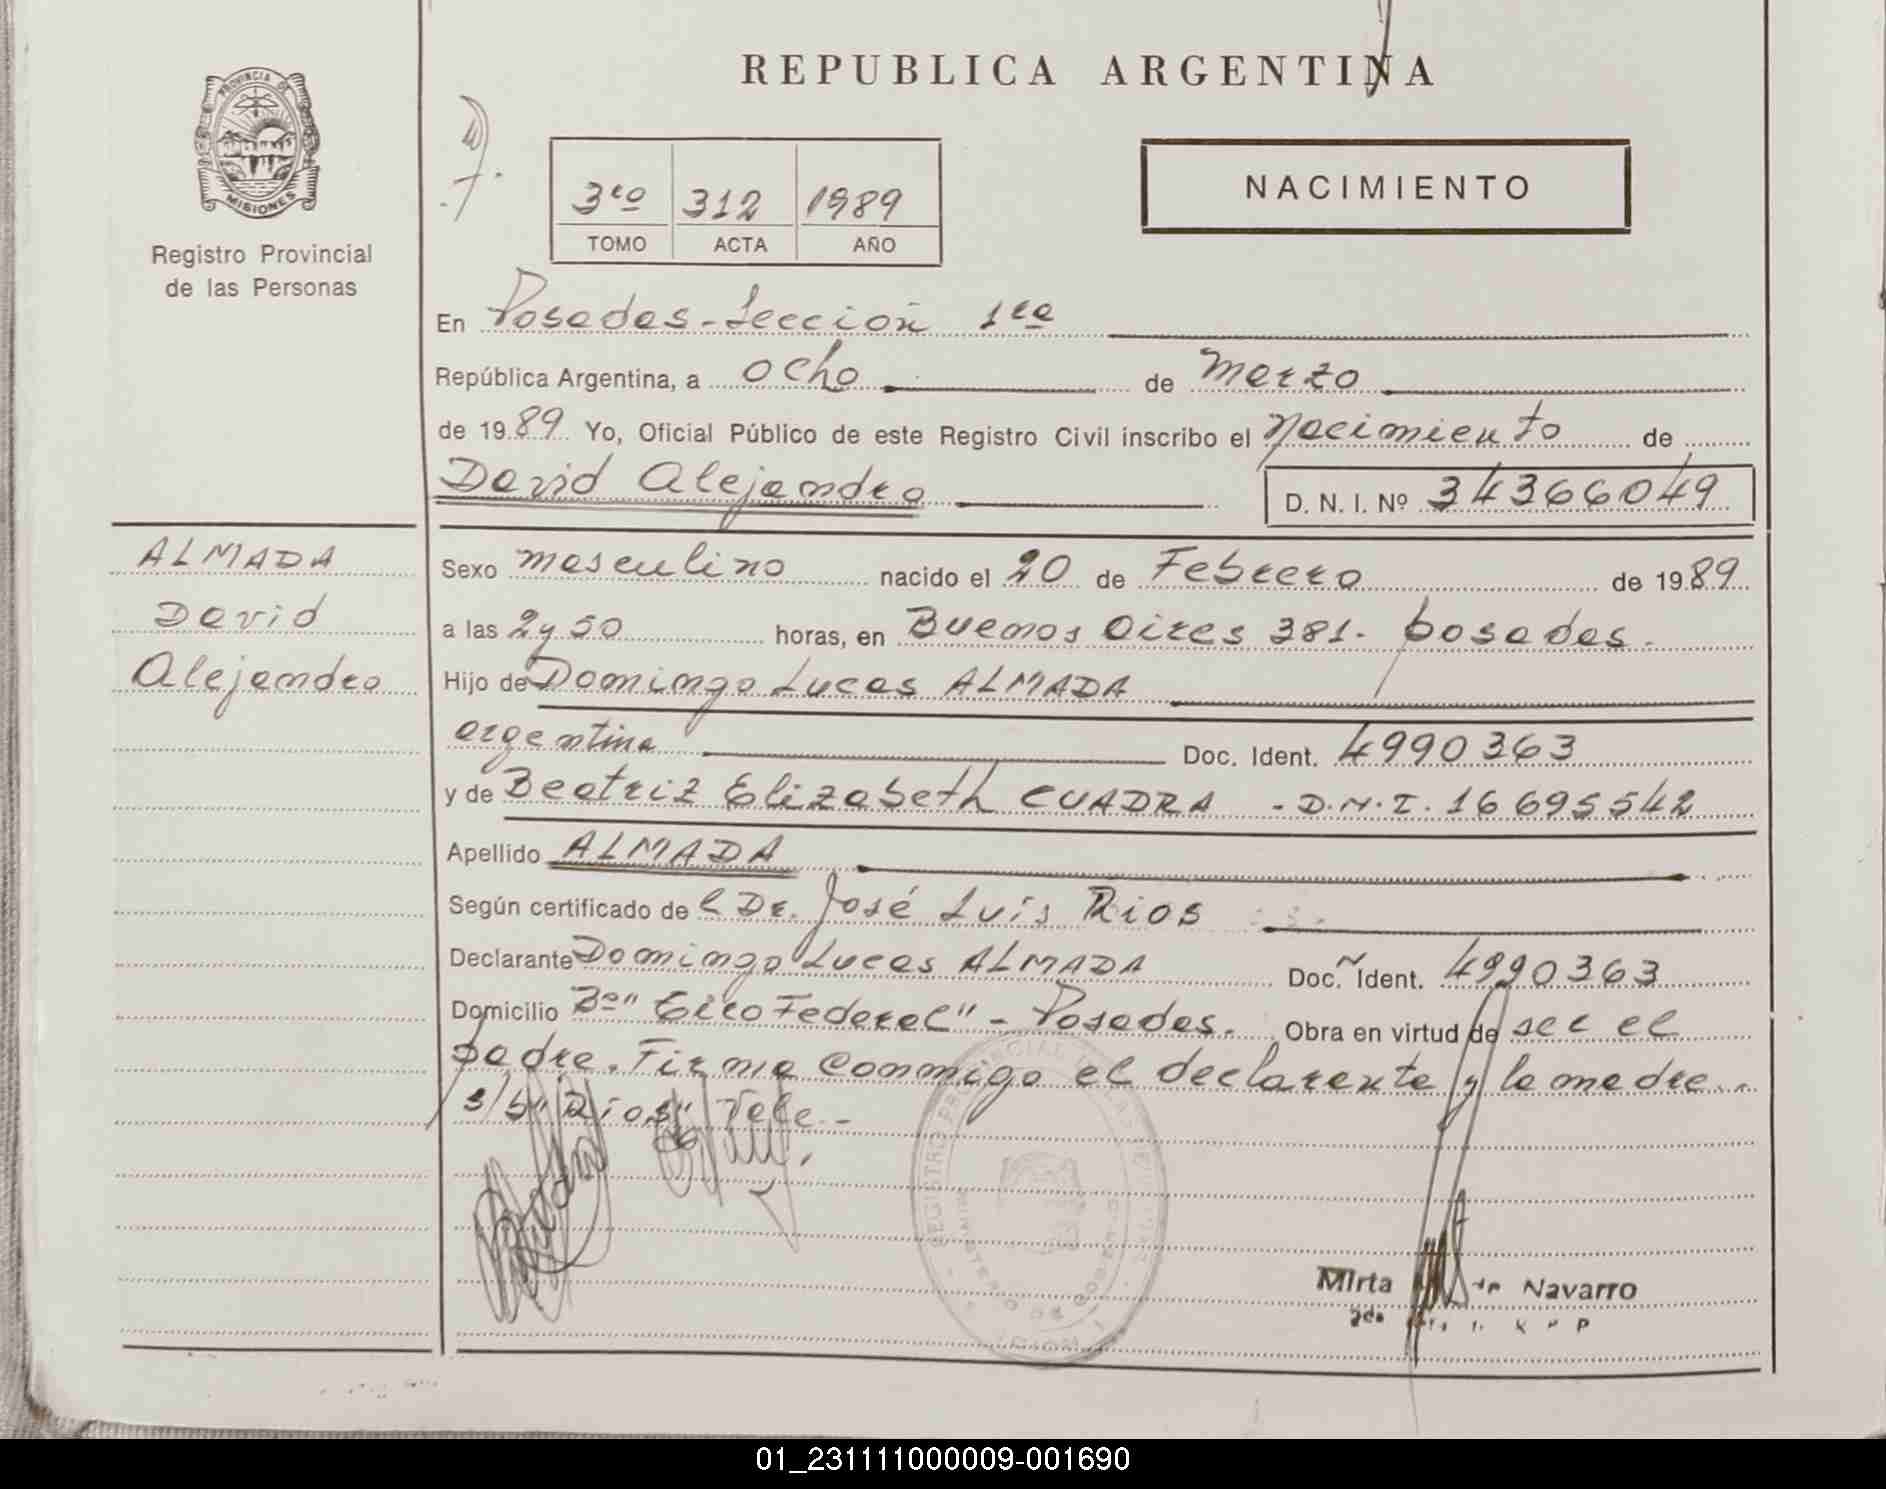 REPUBLICA ARGENTINA
PROVINCIA DE
MISIONES
Registro Provincial
de las Personas
3ro 312 1989
TOMO ACTA AÑO
NACIMIENTO
En Posadas - Sección 1ra
República Argentina, a ocho de Marzo
de 1989 Yo, Oficial Público de este Registro Civil inscribo el Nacimiento de
David Alejandro
D. N. I. Nº 34366049
ALMADA
David
Alejandro
Sexo masculino nacido el 20 de Febrero de 1989
a las 2 y 50 horas, en Buenos Aires 381. Posadas.
Hijo de Domingo Lucas ALMADA
argentina Doc. Ident. 4990363
y de Beatriz Elizabeth CUADRA - D.N.I. 16695542
Apellido ALMADA
Según certificado del Dr. José Luis Rios
Declarante Domingo Lucas ALMADA Doc. Ident. 4990363
Domicilio Bº" Federal" - Posadas. Obra en virtud de ser el
padre. Firma conmigo el declarante y la madre.
s/b "Rios" Vale.-
REGISTRO PROVINCIAL DE LAS PERSONAS
MINISTERIO DE GOBIERNO
Mirta de Navarro
01_231111000009-001690